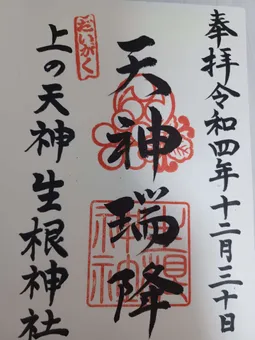 奉拝令和四年十二月三十日
天神瑞降
だいがく
上の天神生根神社
生根神社